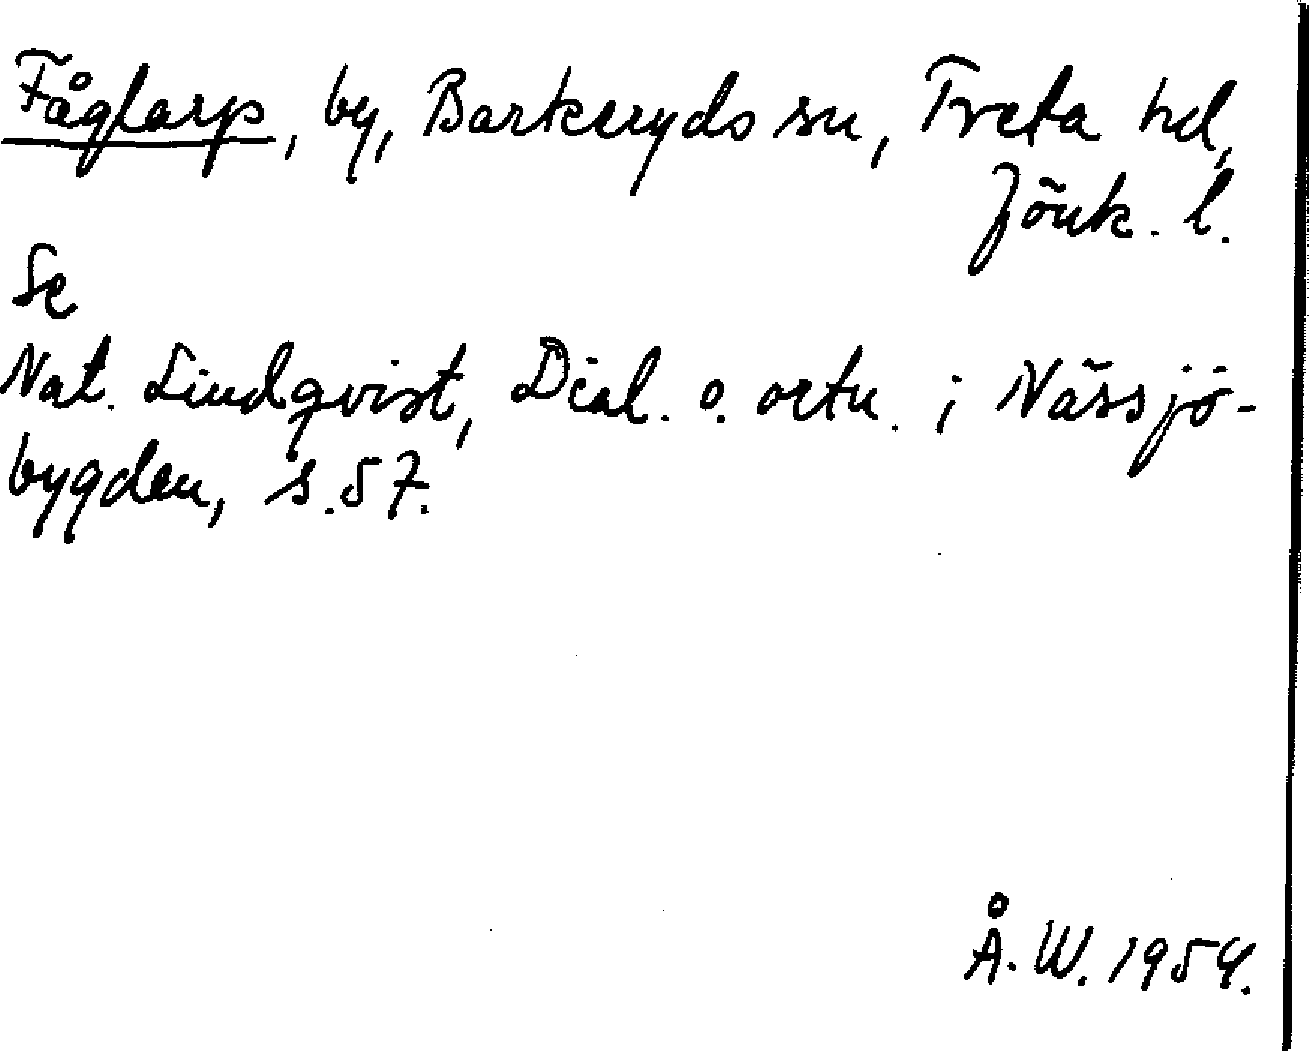 Fåglarp, by, Barkeryds sn, Tveta hd,
Jönk. l.
Se
Nat. Lindqvist, Dial. o. ortn. i Nässjö-
bygden, s. 57.
Å. W. 1954.